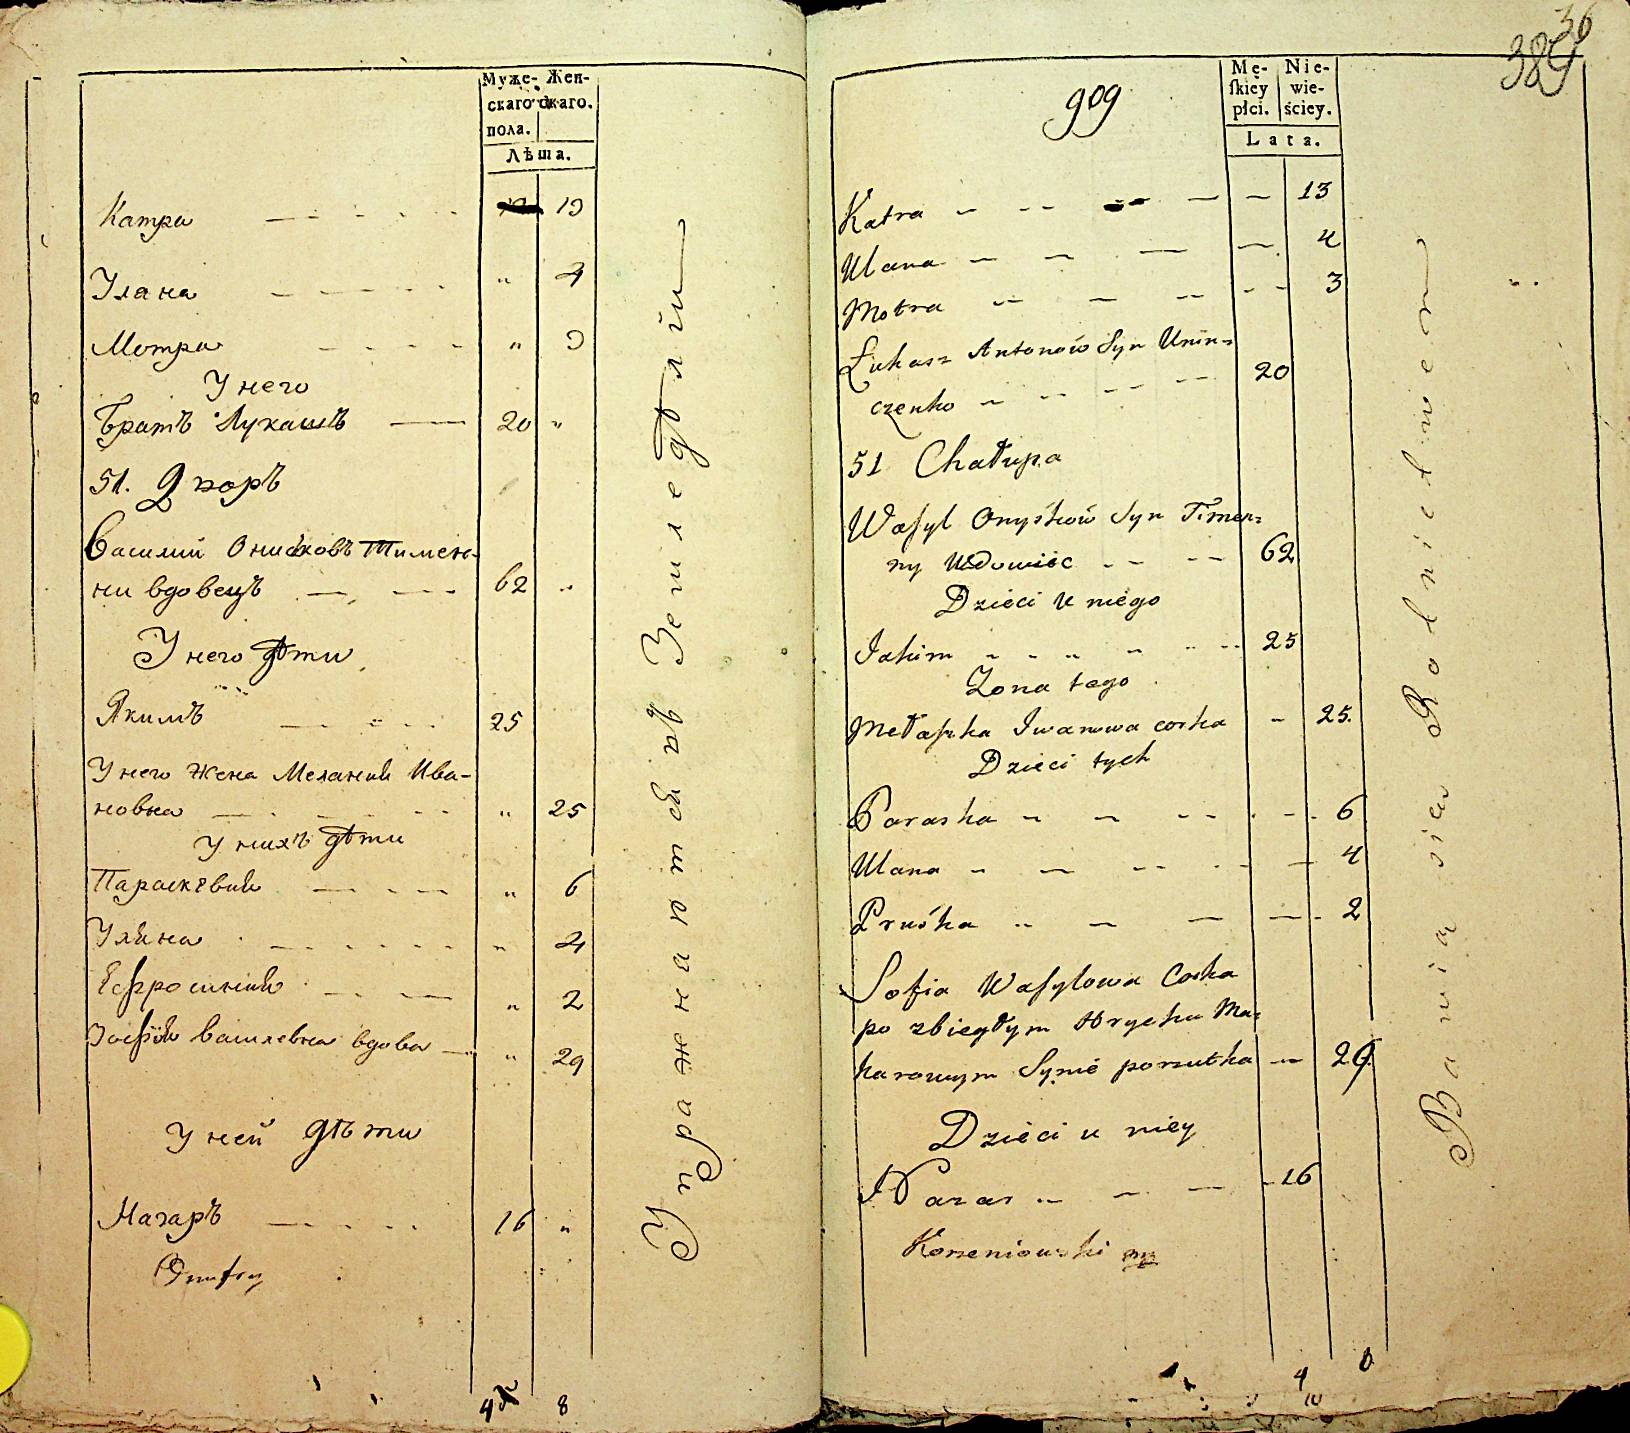 Муже- Жен-
скаго скаго.
пола.
Лѣта.
Катра 13
Улана " 4
Мотра " 3
У него
Братъ Лукашъ 20 "
51. Дворъ
Василий Онисковъ Тимен-
ни вдовецъ 62 "
У него дѣти
Якимъ 25
У него жена Меланія Ива-
новна " 25
У нихъ дѣти
Параскевия " 6
Уляна " 4
Ефросиния " 2
Зофія Василевна вдова " 29
У ней дѣти
Назаръ 16 "
Dmitry
4 8
Упражняются въ Земледѣлии
36
384
909
Mę- Nie-
ſkiey wie-
płci. ściey.
Lata.
Katra 13
Ulana 4
Motra 3
Łukasz Antonów Syn Unin=
czenko 20
51 Chałupa
Waſyl Onyśków Syn Timen=
ny Wdowiec 62
Dzieci U niego
Jakim 25
Zona tego
Mełaſzka Iwanowa corka 25.
Dzieci tych
Paraska 6
Ulana 4
Pruśka 2
Sofia Waſylowa Corka
po zbiegłym Hrycku Ma=
karowym Synie porzutka 29
Dzieci u niey
Nazar 16
Korzeniowski mp
4 8
Bawią się Rolnictwem